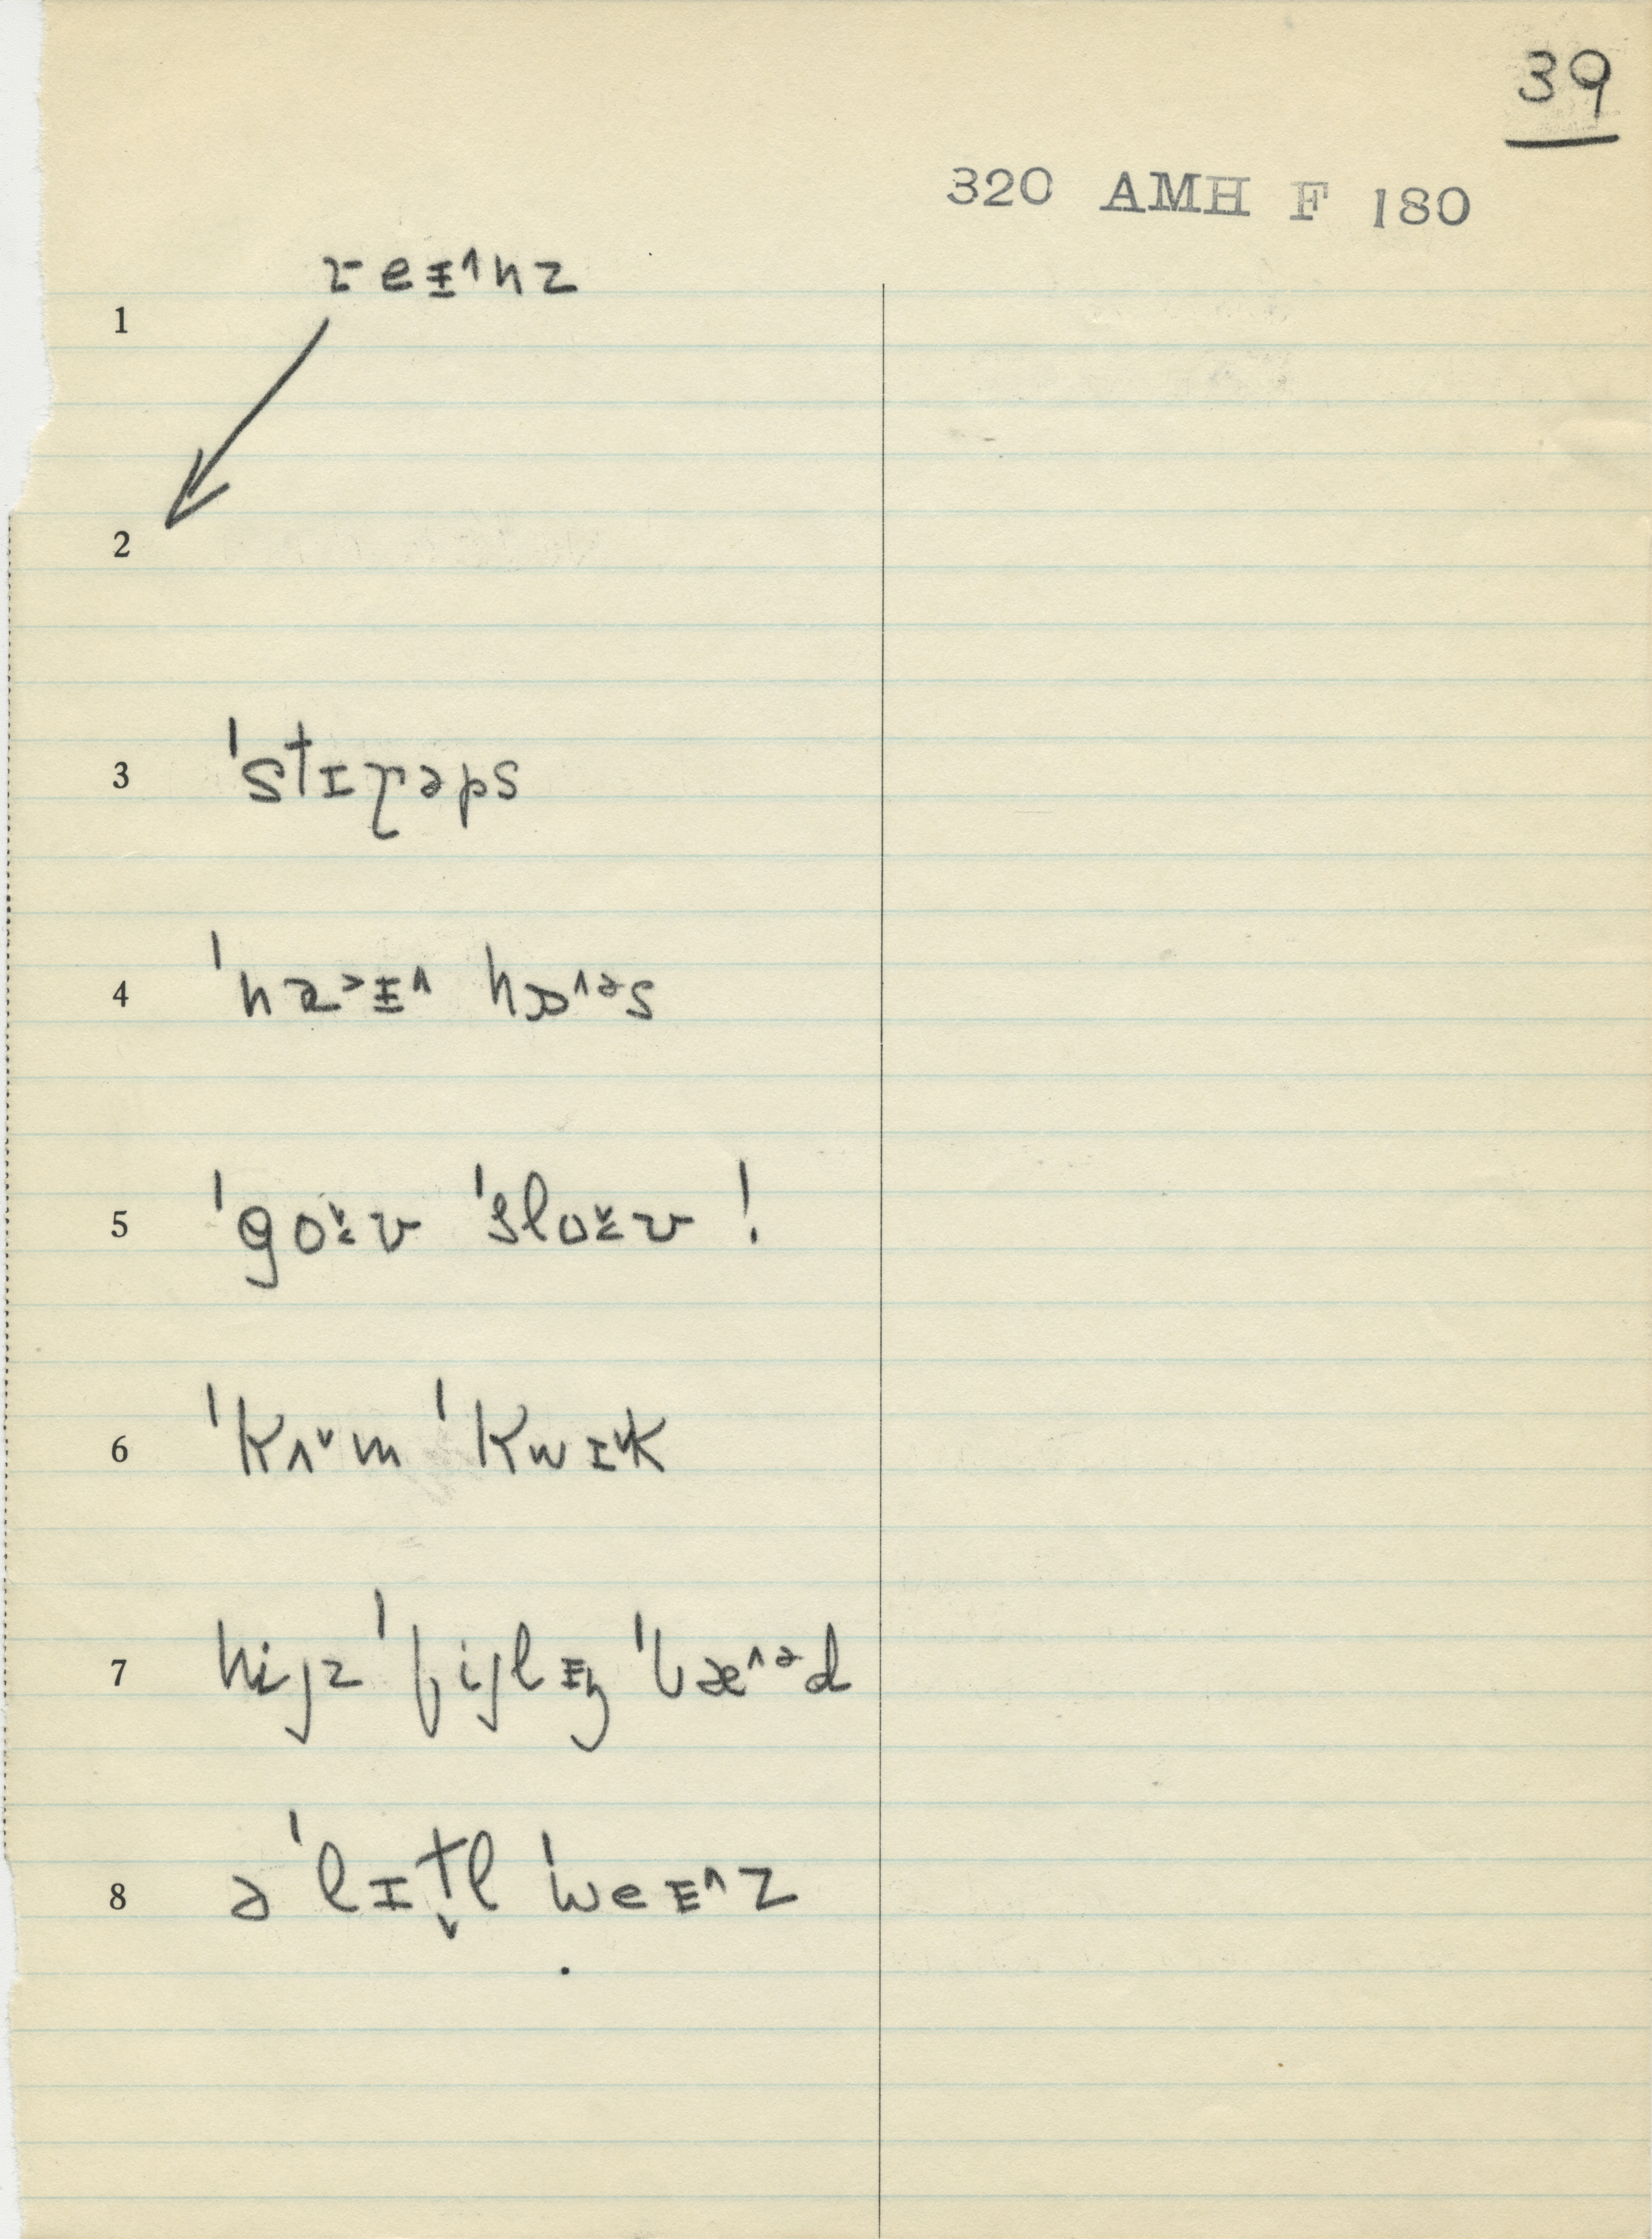 39
320 AMH F 180
1 ɤeɪ̵˄nz
2
3 ˈstɪɽəps
4 ˈnæ˃ɪ̵˄ hɒ˄ᵊs
5 ˈgo˅ʊ ˈslo˅ʊ !
6 ˈkʌ˅m ˈkwɪ˅k
7 hijz ˈfijlɪ̵ŋ ˈbæ˄ᵊd
8 ə ˈlɪt̬l ˈweɪ̵˄z